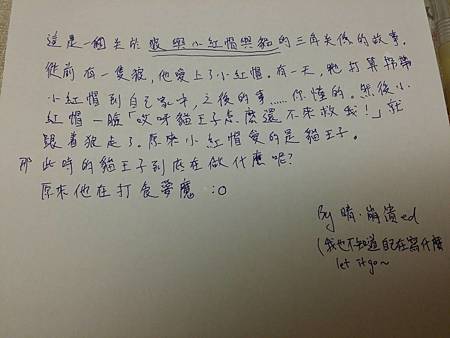 這是一個关於狼與小紅帽與貓的三角关係的故事.
從前有一隻狼,他愛上了小紅帽.有一天,牠打算拐帶
小紅帽到自己家中,之後的事……你懂的.然後小
紅帽一臉「哎呀貓王子怎麼還不來救我!」就
跟着狼走了.原來小紅帽愛的是貓王子.
那此時的貓王子到底在做什麼呢?
原來他在打食夢魔 :O
By 晴·崩潰ed
(我也不知道自己在寫什麼
let it go~